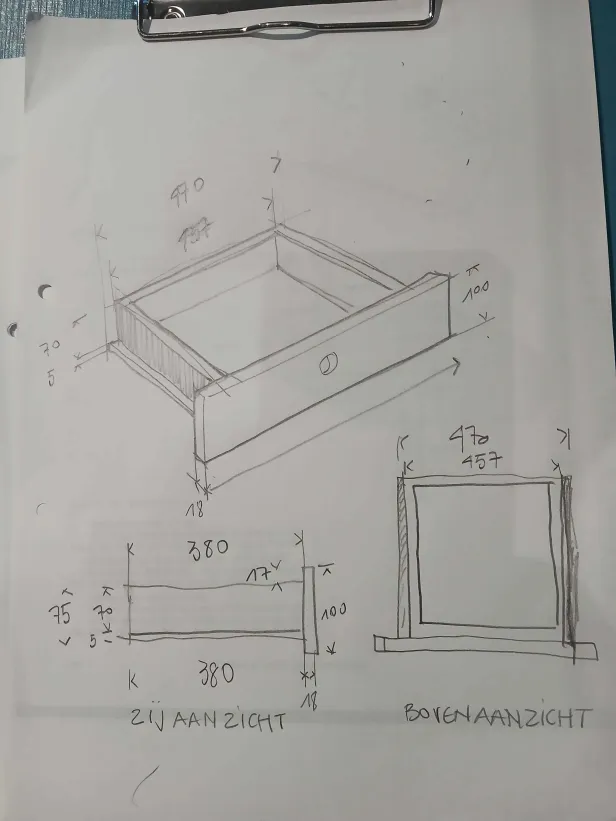 470
457
100
70
5
18
470
457
380
17
75
70
100
5
380
18
ZIJAANZICHT
BOVENAANZICHT